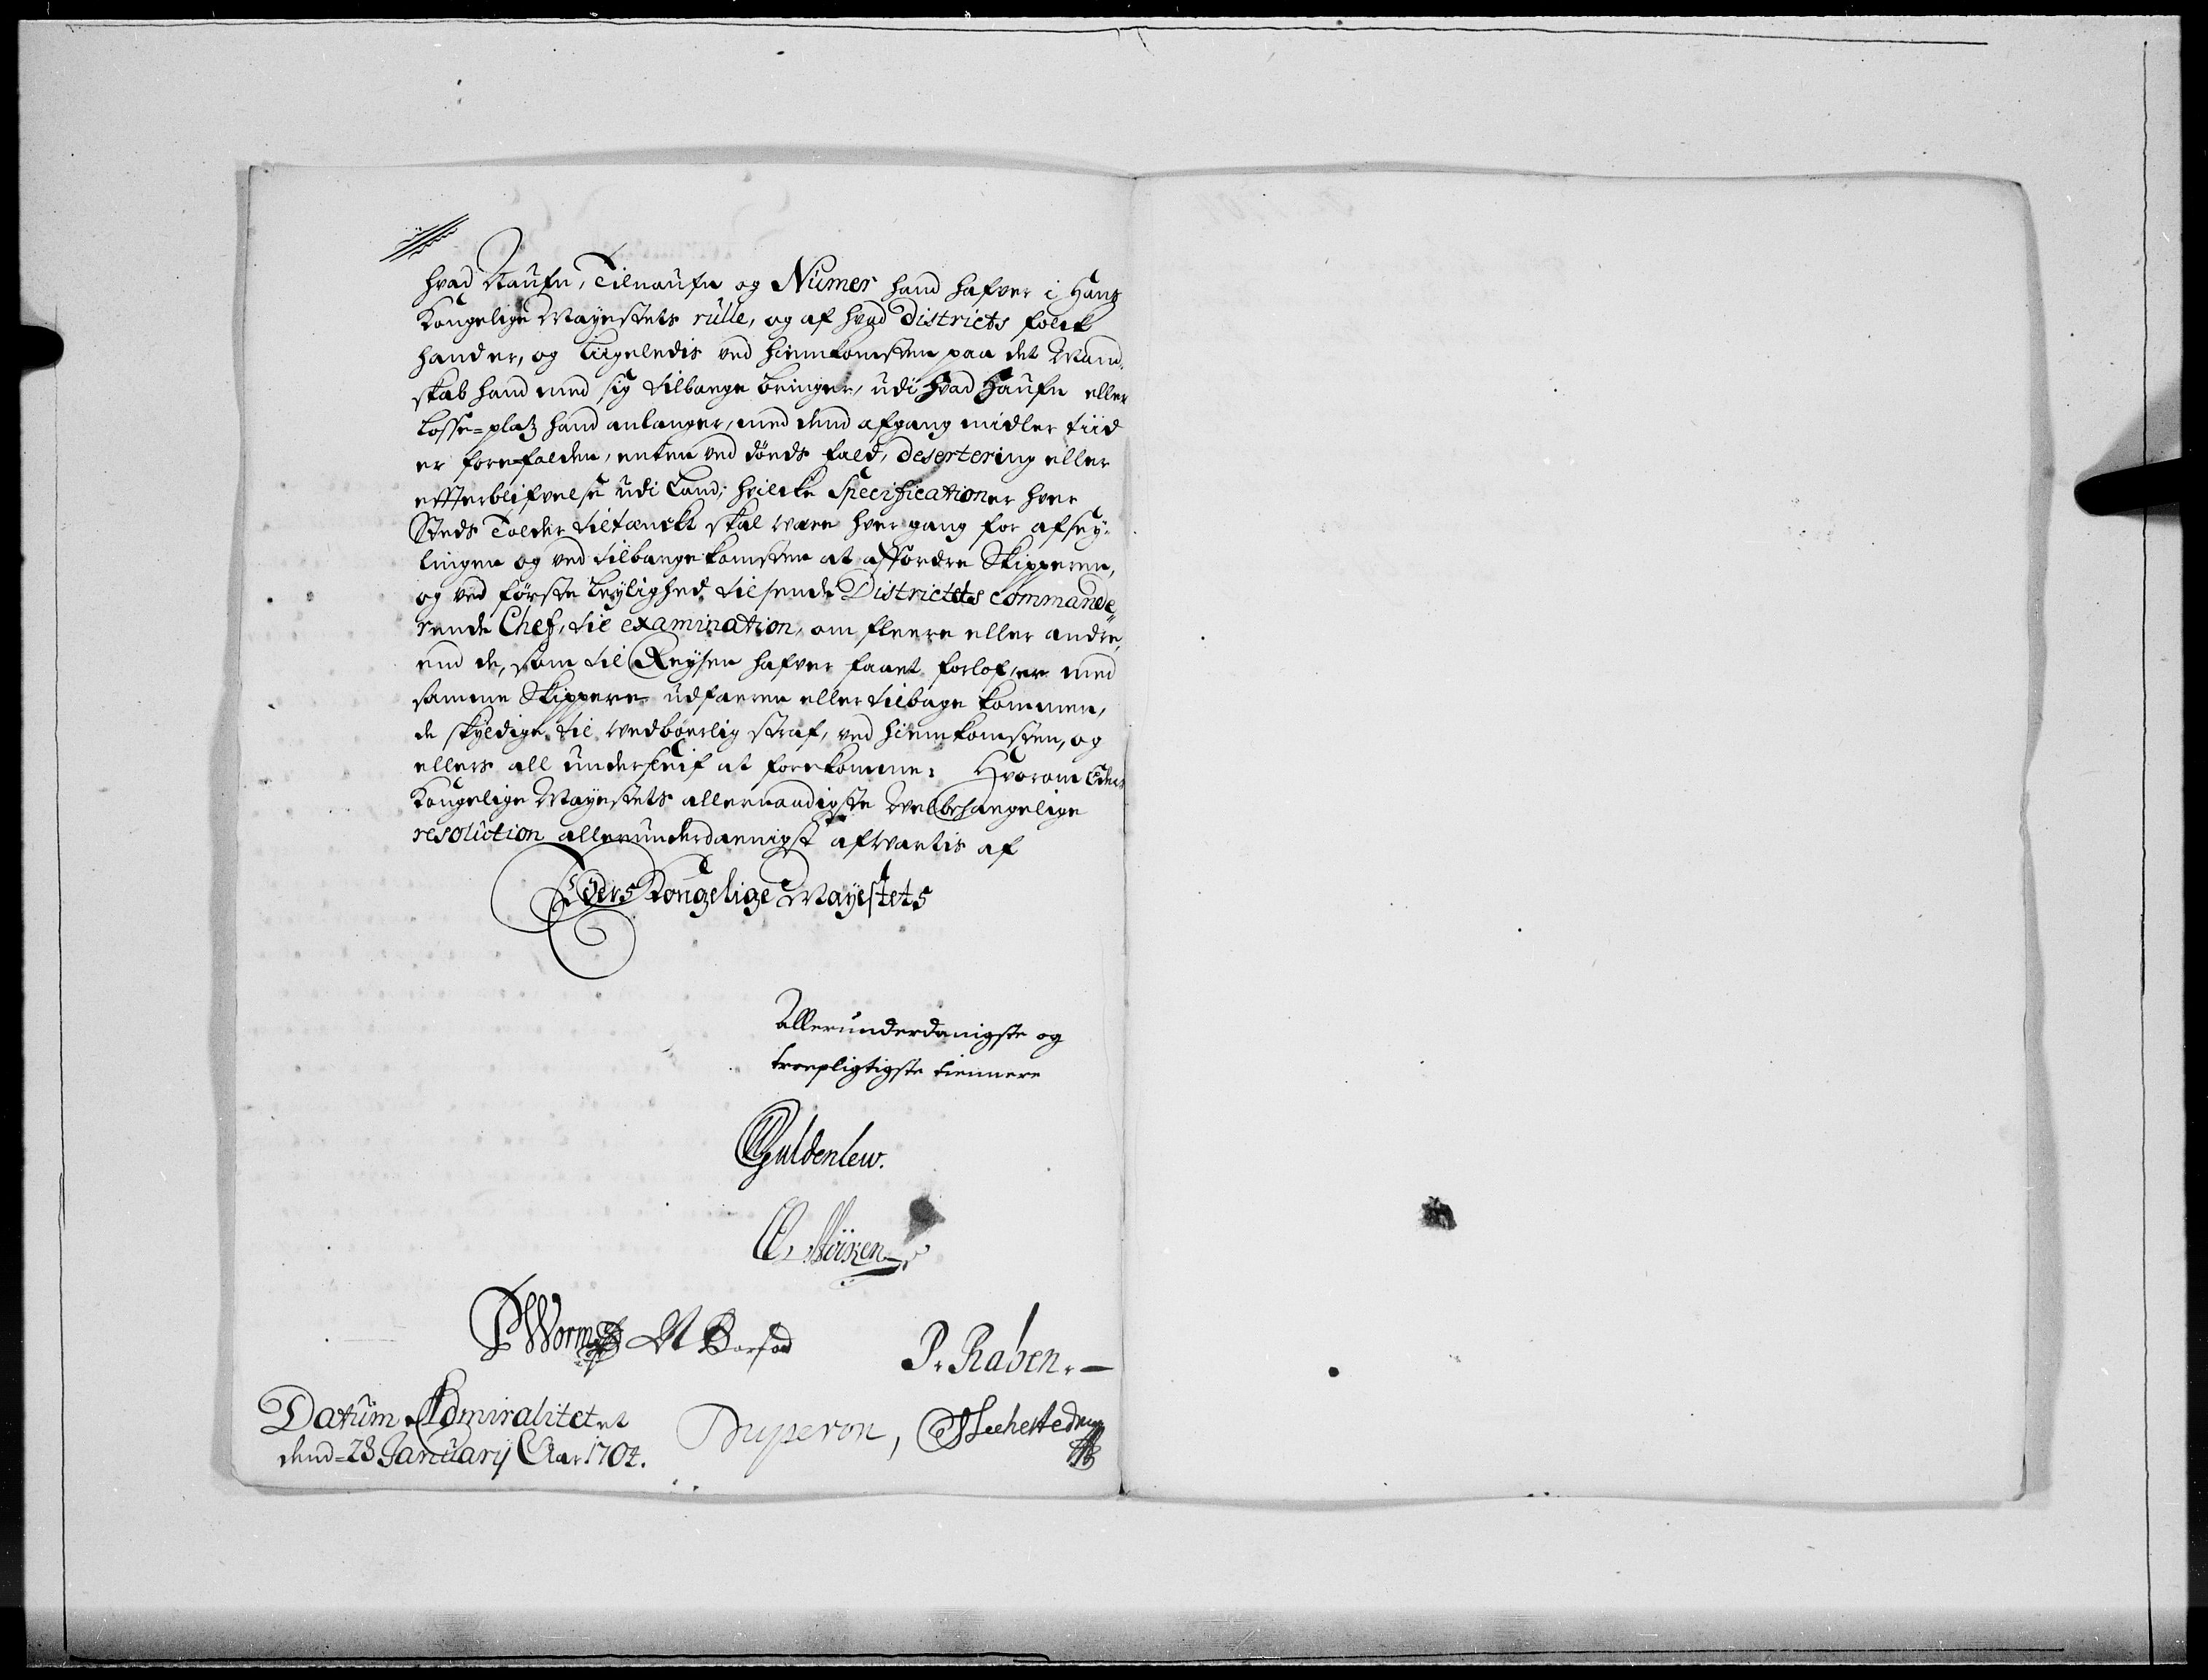 hvad Naufn, Tilnaufn og Numer hand hafver i Hans
Kongelige Mayestets rulle, og af hvad Districts folck
hand er, og liigeledis ved hiemkomsten paa det Mand-
skab hand med sig tilbage bringer, udi hvad Haufn eller
Losse-platz hand anlanger, med dend afgang midler tiid
er forefalden, enten ved döeds fald, desertering eller
effterblifvelse udi Land; hvilcke Specificationer hver
Steds Tolder tiltænckt skal være hver gang for afsey-
lingen og ved tilbagekomsten at affordre Skipperen,
og ved første Leylighed tilsende Districtets commande-
rende Chef, til examination, om fleere eller andre,
end de, som til Reysen hafver faaet forlof, er med
samme Skippere udfaren eller tilbage kommen,
de skyldige til vedbørlig straf, ved hiemkomsten, og
ellers all undersleif at forekomme: Hvorom Eders
Kongelige Mayestets allernaadigste velbehagelige
resolution allerunderdanigst afvartis af
Eders Kongelige Mayestets
Allerunderdanigste og
troepligtigste tiennere
Guldenlew.
Worm
P. Raben.
Datum Admiralitetet
dend 28 January Aar 1704.
Duperon,